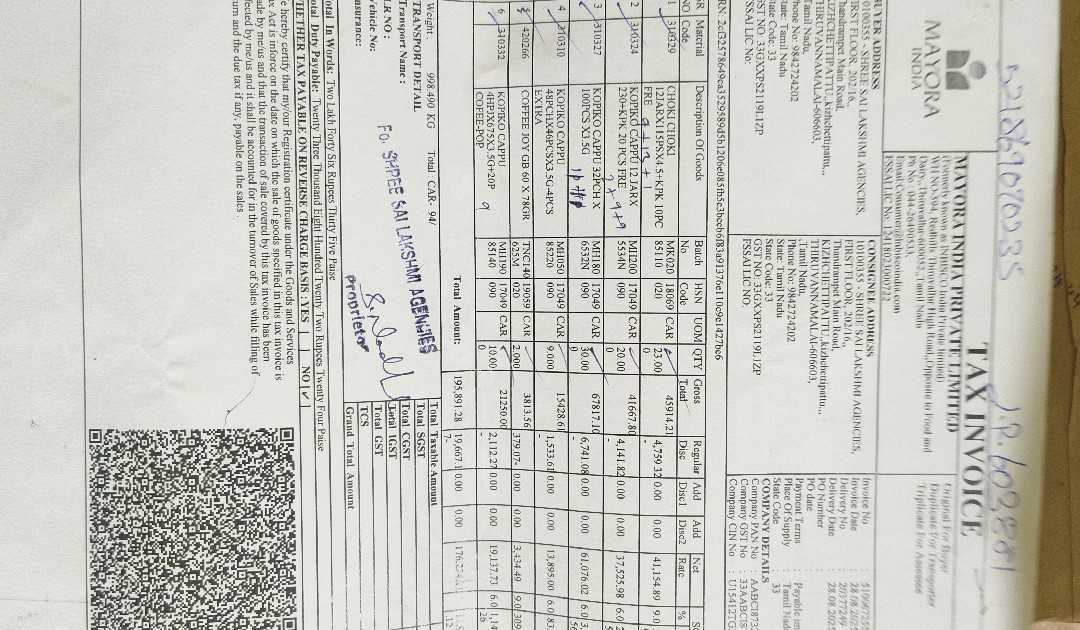 B21869070035
J.P. 6038889
TAX INVOICE
MAYORA
INDIA
MAYORA INDIA PRIVATE LIMITED
(Formerly known as INBISCO India Private limited)
Dairy, Thiruvallur-600052, Tamil Nadu
Ph No : - 044-26490313,
Email:Consumer@inbiscoindia.com
FSSAI LIC No. 12418021000722
Original For Buyer
Duplicate For Transporter
Triplicate For Assessee
BUYER ADDRESS
10100355 - SHREE SAI LAKSHMI AGENCIES,
FIRST FLOOR, 202/16,,
Thandrampet Main Road,
KIZHCHETTIPATTU,,kizhchettipattu,,,
THIRUVANNAMALAI-606603,
Tamil Nadu,
Phone No: 9842724202
State: Tamil Nadu
State Code: 33
GST NO: 33GXXPS2119L1ZP
FSSAI LIC No:
CONSIGNEE ADDRESS
10100355 - SHREE SAI LAKSHMI AGENCIES,
FIRST FLOOR, 202/16,,
Thandrampet Main Road,
KIZHCHETTIPATTU,,kizhchettipattu,,,
THIRUVANNAMALAI-606603,
,Tamil Nadu,
Phone No: 9842724202
State: Tamil Nadu
State Code: 33
GST NO :33GXXPS2119L1ZP
FSSAI LIC NO:
Invoice No
Invoice Date : 28.08.2025
Delivery No : 20377249
Delivery Date : 28.08.2025
PO Number
PO date
Payment Terms : Payable im
Place Of Supply : Tamil Nad
State Code : 33
COMPANY DETAILS
Company PAN No
Company GST No
Company CIN No : U15412TG
SR NO Material Code Description Of Goods Batch No HSN Code UOM QTY Gross Total Regular Disc Add Disc1 Add Disc2 Net Rate %
1 310329 CHOKI CHOKI 12JARX115PSX4.5+KPK 10PC FRE MK020 85110 18069 020 CAR 23.00 0 45914.21 4,759.32 0.00 0.00 41,154.89 9.0
9+13+1
2 310324 KOPIKO CAPPU 12 JARX 230+KPK 20 PCS FRE MH200 5534N 17049 090 CAR 20.00 0 41667.80 4,141.82 0.00 0.00 37,525.98 6.0
2+9+9
3 310327 KOPIKO CAPPU 32PCH X 100PCS X3.5G MH180 6532N 17049 090 CAR 30.00 0 67817.10 6,741.08 0.00 0.00 61,076.02 6.0
4 310310 KOPIKO CAPPU 48PCHX46PCSX3.5G-4PCS EXTRA MH050 85220 17049 090 CAR 9.000 15428.61 1,533.61 0.00 0.00 13,895.00 6.0
5 420266 COFFEE JOY GB 60 X 78GR TNC140 625M 19059 020 CAR 2.000 3813.56 379.07- 0.00 0.00 3,434.49 9.0
6 310332 KOPIKO CAPPU 4HPDX675X3.5G+20P COFEE-POP MH190 85140 17049 090 CAR 10.00 0 21250.00 2,112.27 0.00 0.00 19,137.73 6.0
9
Total Amount: 195,891.28 19,667.1 7- 0.00 0.00
Weight : 998.490 KG Total CAR: 94/
TRANSPORT DETAIL
Transport Name :
LR NO :
Vehicle No:
Insurance:
Fo. SHREE SAI LAKSHMI AGENCIES
Proprietor
Total Taxable Amount
Total SGST
Total CGST
Total IGST
Total GST
TCS
Grand Total Amount
Total In Words: Two Lakh Forty Six Rupees Thirty Five Paise
Total Duty Payable: Twenty Three Thousand Eight Hundred Twenty Two Rupees Twenty Four Paise
WHETHER TAX PAYABLE ON REVERSE CHARGE BASIS : YES NO ✓
We hereby certify that my/our Registration certificate under the Goods and Services
Tax Act is inforce on the date on which the sale of goods specified in this tax invoice is
made by me/us and that the transaction of sale covered by this tax invoice has been
effected by me/us and it shall be accounted for in the turnover of Sales while filling of
return and the due tax if any, payable on the sales .